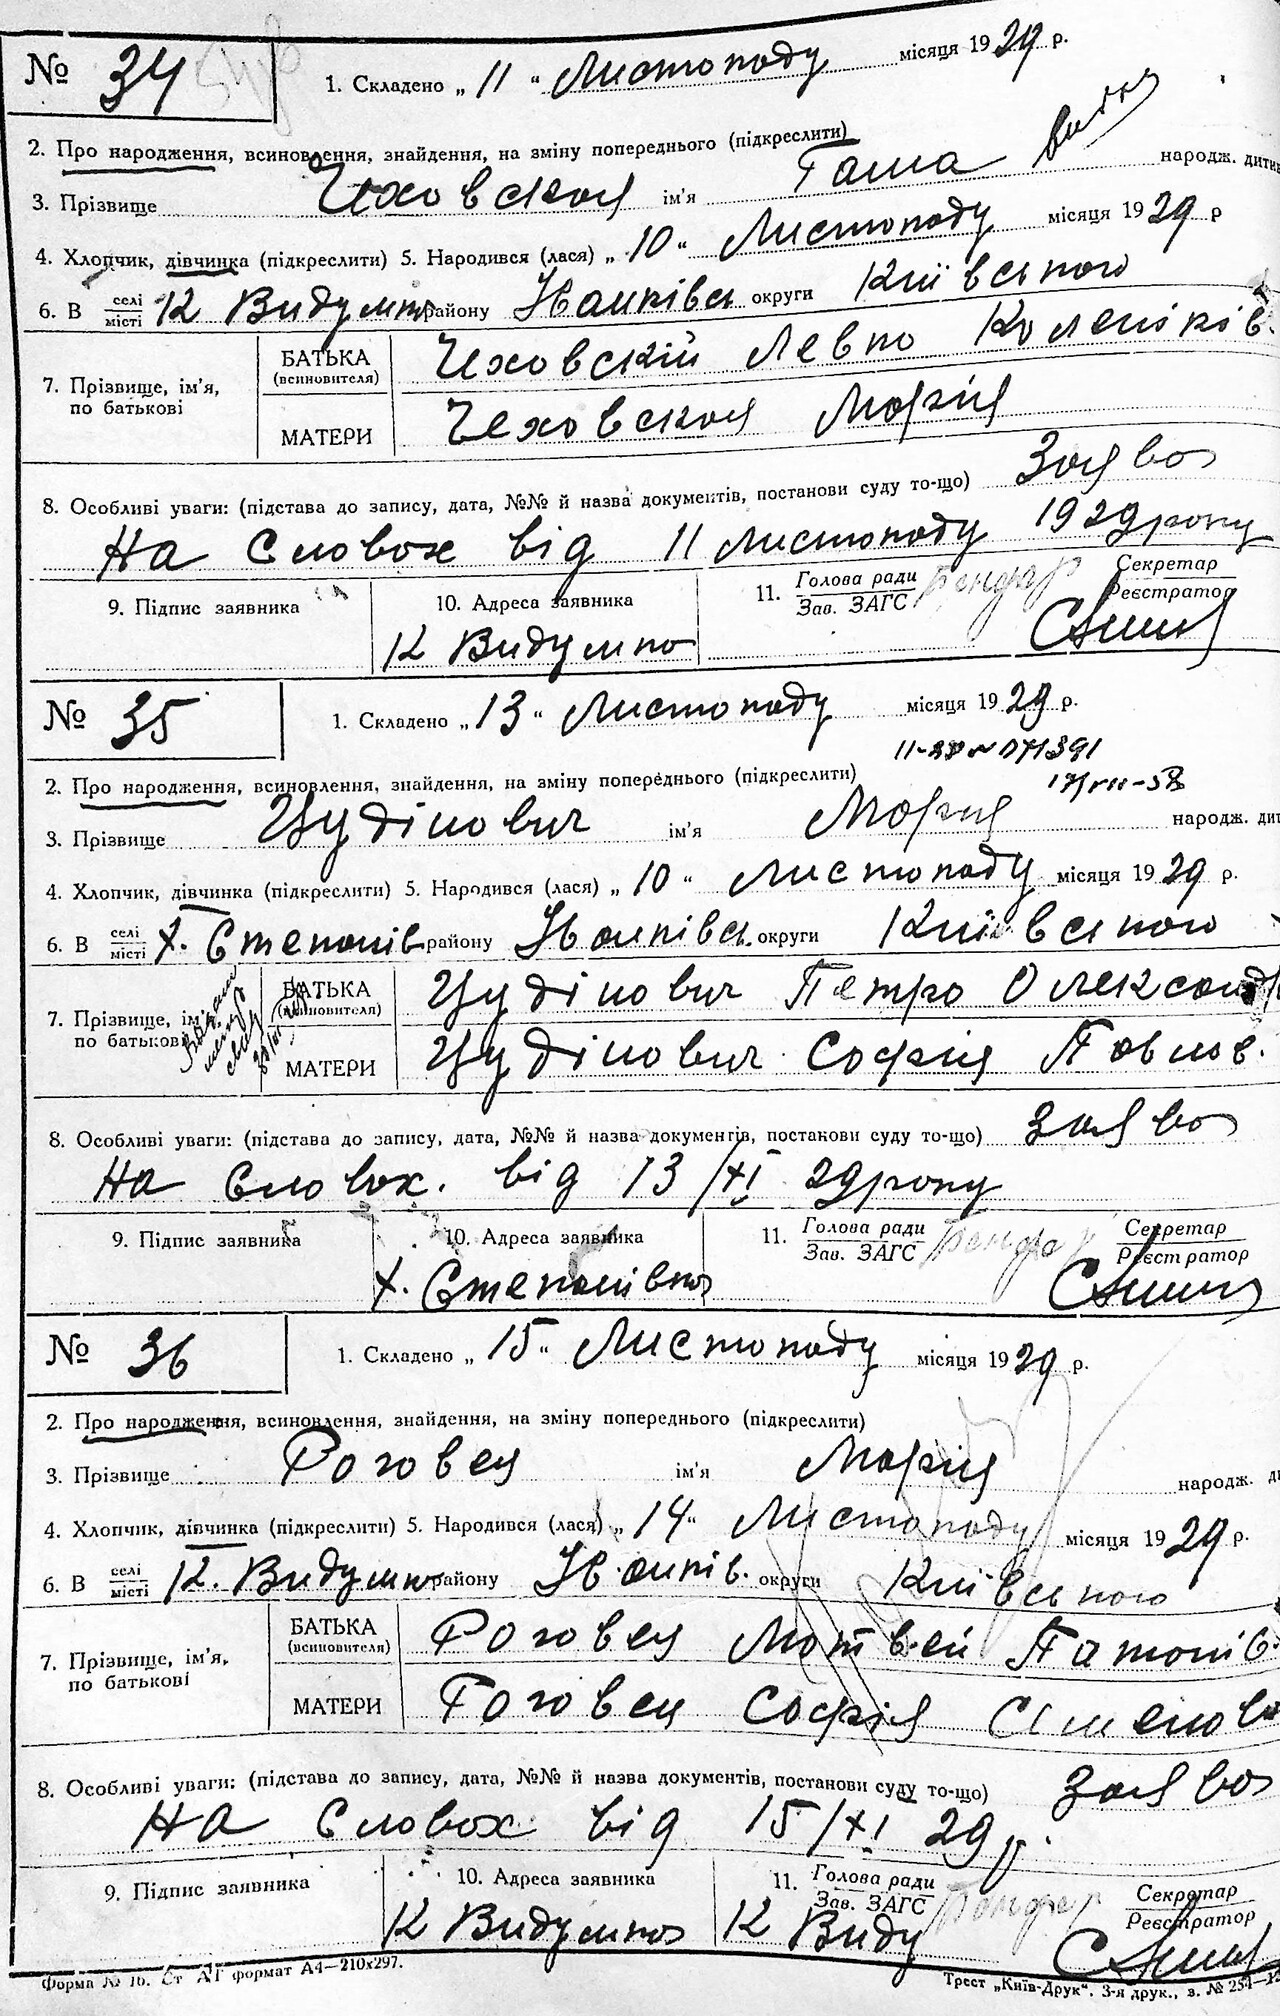 № 34
1. Складено „ 11 " Листопаду місяця 19 29 р.
2. Про народження, всиновлення, знайдення, на зміну попереднього (підкреслити)
3. Прізвище Чеховская ім'я Гаша народж. дитин
4. Хлопчик, дівчинка (підкреслити) 5. Народився (лася) „ 10 " Листопаду місяця 19 29 р
6. В селі місті К Видумка району Іванківсь округи Київського
7. Прізвище, ім'я, по батькові
БАТЬКА (всиновителя) Чеховскій Левко
МАТЕРИ Чеховская Марія
8. Особливі уваги: (підстава до запису, дата, №№ й назва документів, постанови суду то-що) Заява
на Словах від 11 листопаду 1929 року
9. Підпис заявника 10. Адреса заявника 11. Голова ради Зав. ЗАГС Бондар Секретар Реєстратор
К Видумка
№ 35
1. Складено „ 13 " Листопаду місяця 19 29 р.
2. Про народження, всиновлення, знайдення, на зміну попереднього (підкреслити)
3. Прізвище Цудінович ім'я Мария народж. дит
4. Хлопчик, дівчинка (підкреслити) 5. Народився (лася) „ 10 " Листопаду місяця 19 29 р.
6. В селі місті х. Степанів району Іванківсь. округи Київського
7. Прізвище, ім'я, по батькові
БАТЬКА (всиновителя) Цудінович Петро Олександ
МАТЕРИ Цудінович Софія Павлов.
8. Особливі уваги: (підстава до запису, дата, №№ й назва документів, постанови суду то-що) Заява
на Словах. від 13/XI 29 року
9. Підпис заявника 10. Адреса заявника 11. Голова ради Зав. ЗАГС Бондар Секретар Реєстратор
х. Степанівка
№ 36
1. Складено „ 15 " Листопаду місяця 19 29 р.
2. Про народження, всиновлення, знайдення, на зміну попереднього (підкреслити)
3. Прізвище Роговец ім'я Марія народж. ди
4. Хлопчик, дівчинка (підкреслити) 5. Народився (лася) „ 14 " Листопаду місяця 19 29 р.
6. В селі місті К. Видумка району Іванків. округи Київського
7. Прізвище, ім'я, по батькові
БАТЬКА (всиновителя) Роговец Матвей
МАТЕРИ Роговец Софія
8. Особливі уваги: (підстава до запису, дата, №№ й назва документів, постанови суду то-що) Заява
на Словах від 15/XI 29 р.
9. Підпис заявника 10. Адреса заявника 11. Голова ради Зав. ЗАГС Бондар Секретар Реєстратор
К Видумка К Виду
Форма № 16. Ст А1 формат А4—210х297. Трест „Київ-Друк". 3-я друк., з. № 254—